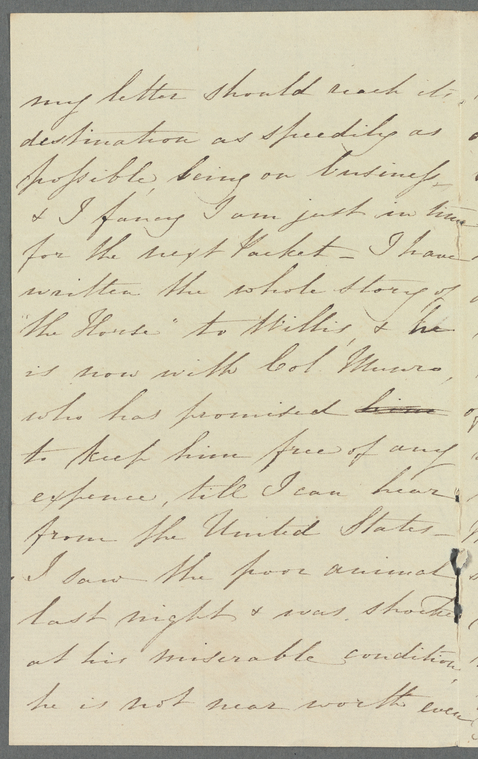 my letter should reach its
destination as speedily as
possible, being on business,
& I fancy I am just in time
for the next Packet – I have
written the whole story of
"the Horse" to Willis, & he
is now with Col. Munro,
who has promised him
to keep him free of any
expence, till I can hear
from the United States –
I saw the poor animal
last night & was shocked
at his miserable condition,
he is not near worth even